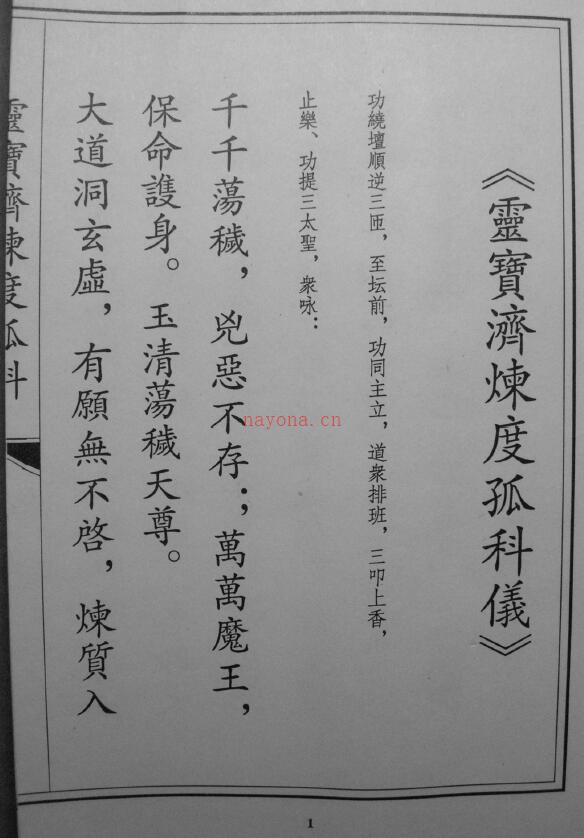 《靈寶濟煉度孤科儀》
功繞壇順逆三匝，至坛前，功同主立，道衆排班，三叩上香，
止樂、功提三太聖，衆咏：
千千蕩穢，兇惡不存；萬萬魔王，
保命護身。玉清蕩穢天尊。
大道洞玄虛，有願無不啓，煉質入
靈寶濟煉度孤科
nayona.cn
1